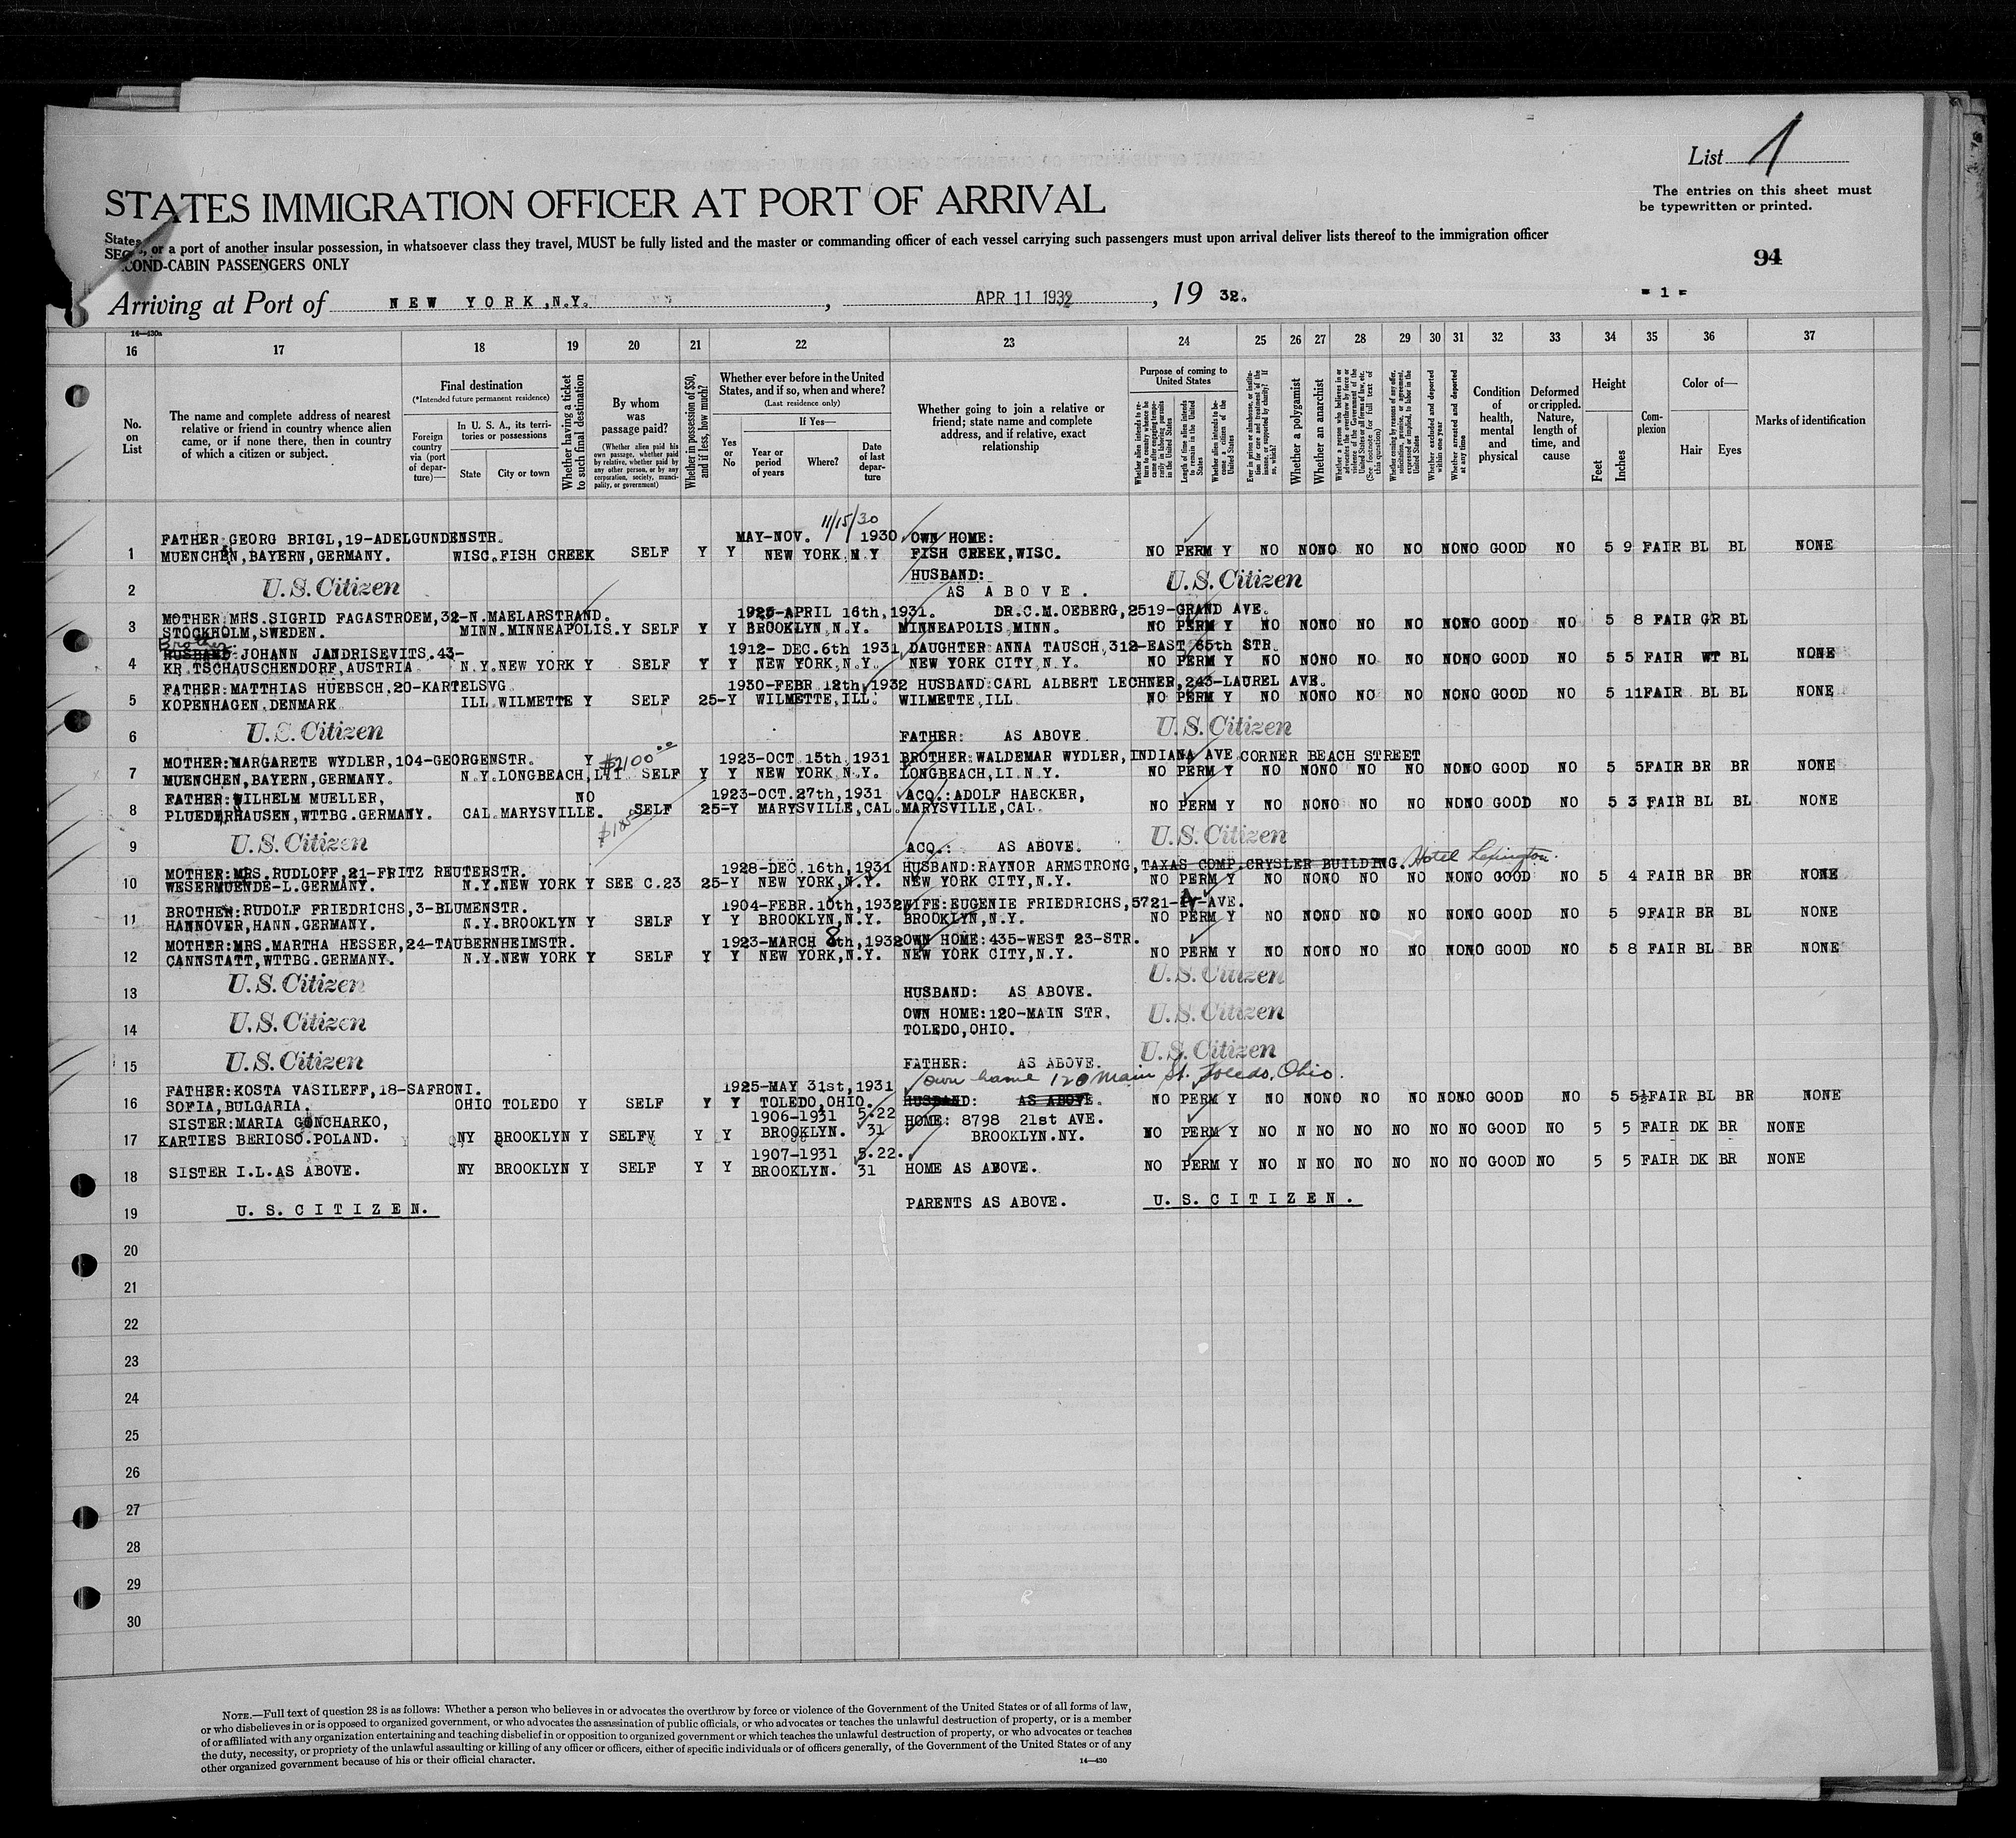 List 1
STATES IMMIGRATION OFFICER AT PORT OF ARRIVAL
The entries on this sheet must
be typewritten or printed.
States, or a port of another insular possession, in whatsoever class they travel, MUST be fully listed and the master or commanding officer of each vessel carrying such passengers must upon arrival deliver lists thereof to the immigration officer
SECOND-CABIN PASSENGERS ONLY
94
Arriving at Port of NEW YORK, N.Y. , APR 11 1932 , 19 32.
= 1 =
14—430a
16 17 18 19 20 21 22 23 24 25 26 27 28 29 30 31 32 33 34 35 36 37
No. on List
The name and complete address of nearest relative or friend in country whence alien came, or if none there, then in country of which a citizen or subject.
Final destination
(*Intended future permanent residence)
Foreign country via (port of departure)—
In U. S. A., its territories or possessions
State
City or town
Whether having a ticket to such final destination
By whom was passage paid?
(Whether alien paid his own passage, whether paid by relative, whether paid by any other person, or by any corporation, society, municipality, or government)
Whether in possession of $50, and if less, how much?
Whether ever before in the United States, and if so, when and where?
(Last residence only)
Yes or No
If Yes—
Year or period of years
Where?
Date of last departure
Whether going to join a relative or friend; state name and complete address, and if relative, exact relationship
Purpose of coming to United States
Whether alien intends to return to country whence he came after engaging temporarily in laboring pursuits in the United States
Length of time alien intends to remain in the United States
Whether alien intends to become a citizen of the United States
Ever in prison or almshouse, or institution for care and treatment of the insane, or supported by charity? If so, which?
Whether a polygamist
Whether an anarchist
Whether a person who believes in or advocates the overthrow by force or violence of the Government of the United States or all forms of law, etc. (See footnote for full text of this question)
Whether coming by reasons of any offer, solicitation, promise, or agreement, expressed or implied, to labor in the United States
Whether excluded and deported within one year
Whether arrested and deported at any time
Condition of health, mental and physical
Deformed or crippled. Nature, length of time, and cause
Height
Feet
Inches
Complexion
Color of—
Hair
Eyes
Marks of identification
11/15/30
FATHER:GEORG BRIGL,19-ADELGUNDENSTR. MAY-NOV. 1930 OWN HOME:
1 MUENCHEN,BAYERN,GERMANY. WISC.FISH CREEK SELF Y Y NEW YORK,N Y FISH CREEK,WISC. NO PERM Y NO NONO NO NO NONO GOOD NO 5 9 FAIR BL BL NONE
HUSBAND:
2 U.S.Citizen AS ABOVE. U.S.Citizen
MOTHER:MRS.SIGRID FAGASTROEM,32-N.MAELARSTRAND. 1925-APRIL 16th,1931. DR.C.M.OEBERG,2519-GRAND AVE.
3 STOCKHOLM,SWEDEN. MINN.MINNEAPOLIS.Y SELF Y Y BROOKLYN,N.Y. MINNEAPOLIS,MINN. NO PERM Y NO NONO NO NO NONO GOOD NO 5 8 FAIR GR BL
Brother:
HUSBAND:JOHANN JANDRISEVITS.43- 1912- DEC.6th 1931 DAUGHTER:ANNA TAUSCH,312-EAST 65th STR.
4 KR.TSCHAUSCHENDORF,AUSTRIA N.Y.NEW YORK Y SELF Y Y NEW YORK,N.Y. NEW YORK CITY,N.Y. NO PERM Y NO NONO NO NO NONO GOOD NO 5 5 FAIR WT BL NONE
FATHER:MATTHIAS HUEBSCH,20-KARTELSVG 1930-FEBR 12th,1932 HUSBAND:CARL ALBERT LECHNER,243-LAUREL AVE.
5 KOPENHAGEN,DENMARK ILL WILMETTE Y SELF 25-Y WILMETTE,ILL. WILMETTE,ILL NO PERM Y NO NONO NO NO NONO GOOD NO 5 11FAIR BL BL NONE
6 U.S.Citizen FATHER: AS ABOVE U.S.Citizen
MOTHER:MARGARETE WYDLER,104-GEORGENSTR. Y $2100.00 1923-OCT 15th,1931 BROTHER:WALDEMAR WYDLER,INDIANA AVE.CORNER BEACH STREET
7 MUENCHEN,BAYERN,GERMANY. N.Y.LONGBEACH,LI SELF Y Y NEW YORK,N.Y. LONGBEACH,LI.N.Y. NO PERM Y NO NONO NO NO NONO GOOD NO 5 5FAIR BR BR NONE
FATHER:WILHELM MUELLER, NO 1923-OCT.27th,1931 ACQ.:ADOLF HAECKER,
8 PLUEDERHAUSEN,WTTBG.GERMANY. CAL.MARYSVILLE. SELF 25-Y MARYSVILLE,CAL.MARYSVILLE,CAL. NO PERM Y NO NONO NO NO NONO GOOD NO 5 3 FAIR BL BL NONE
9 U.S.Citizen ACQ.: AS ABOVE. U.S.Citizen
MOTHER:MRS.RUDLOFF,21-FRITZ REUTERSTR. 1928-DEC.16th,1931 HUSBAND:RAYNOR ARMSTRONG,TAXAS COMP.CRYSLER BUILDING. Hotel Lexington.
10 WESERMUENDE-L.GERMANY. N.Y.NEW YORK Y SEE C.23 25-Y NEW YORK,N.Y. NEW YORK CITY,N.Y. NO PERM Y NO NONO NO NO NONO GOOD NO 5 4 FAIR BR BR NONE
BROTHER:RUDOLF FRIEDRICHS,3-BLUMENSTR. 1904-FEBR.10th,1932 WIFE:EUGENIE FRIEDRICHS,5721- AVE.
11 HANNOVER,HANN.GERMANY. N.Y.BROOKLYN Y SELF Y Y BROOKLYN,N.Y. BROOKLYN,N.Y. NO PERM Y NO NONO NO NO NONO GOOD NO 5 9FAIR BR BL NONE
MOTHER:MRS.MARTHA HESSER,24-TAUBERNHEIMSTR. 1923-MARCH 8th,1932 OWN HOME:435-WEST 23-STR.
12 CANNSTATT,WTTBG.GERMANY. N.Y.NEW YORK Y SELF Y Y NEW YORK,N.Y. NEW YORK CITY,N.Y. NO PERM Y NO NONO NO NO NONO GOOD NO 5 8 FAIR BL BR NONE
13 U.S.Citizen HUSBAND: AS ABOVE. U.S.Citizen
OWN HOME:120-MAIN STR.
14 U.S.Citizen TOLEDO,OHIO. U.S.Citizen
15 U.S.Citizen FATHER: AS ABOVE. U.S.Citizen
FATHER:KOSTA VASILEFF,18-SAFRONI. 1925-MAY 31st,1931 own home 120 Main St. Toledo, Ohio.
16 SOFIA,BULGARIA. OHIO TOLEDO Y SELF Y Y TOLEDO,OHIO. HUSBAND: AS ABOVE. NO PERM Y NO NONO NO NO NONO GOOD NO 5 5½FAIR BL BR NONE
SISTER:MARIA GONCHARKO, 1906-1931 5.22 HOME: 8798 21st AVE.
17 KARTIES BERIOSO.POLAND. NY BROOKLYN Y SELF Y Y BROOKLYN. 31 BROOKLYN.NY. NO PERM Y NO N NO NO NO NO NO GOOD NO 5 5 FAIR DK BR NONE
1907-1931 5.22.
18 SISTER I.L.AS ABOVE. NY BROOKLYN Y SELF Y Y BROOKLYN. 31 HOME AS ABOVE. NO PERM Y NO N NO NO NO NO NO GOOD NO 5 5 FAIR DK BR NONE
19 U.S.CITIZEN. PARENTS AS ABOVE. U.S.CITIZEN.
20
21
22
23
24
25
26
27
28
29
30
NOTE.—Full text of question 28 is as follows: Whether a person who believes in or advocates the overthrow by force or violence of the Government of the United States or of all forms of law,
or who disbelieves in or is opposed to organized government, or who advocates the assassination of public officials, or who advocates or teaches the unlawful destruction of property, or is a member
of or affiliated with any organization entertaining and teaching disbelief in or opposition to organized government or which teaches the unlawful destruction of property, or who advocates or teaches
the duty, necessity, or propriety of the unlawful assaulting or killing of any officer or officers, either of specific individuals or of officers generally, of the Government of the United States or of any
other organized government because of his or their official character.
14—430